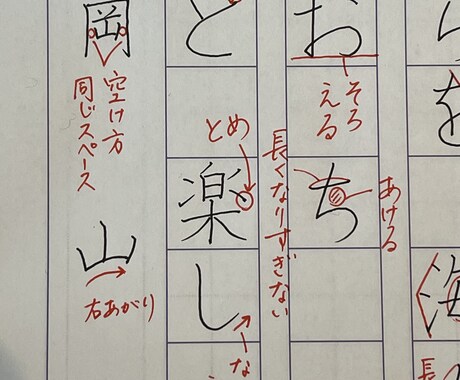 を
海
長
お
そろえる
ち
あける
長くなりすぎない
と
とめ
楽
し
岡
空け方
同じスペース
山
右あがり